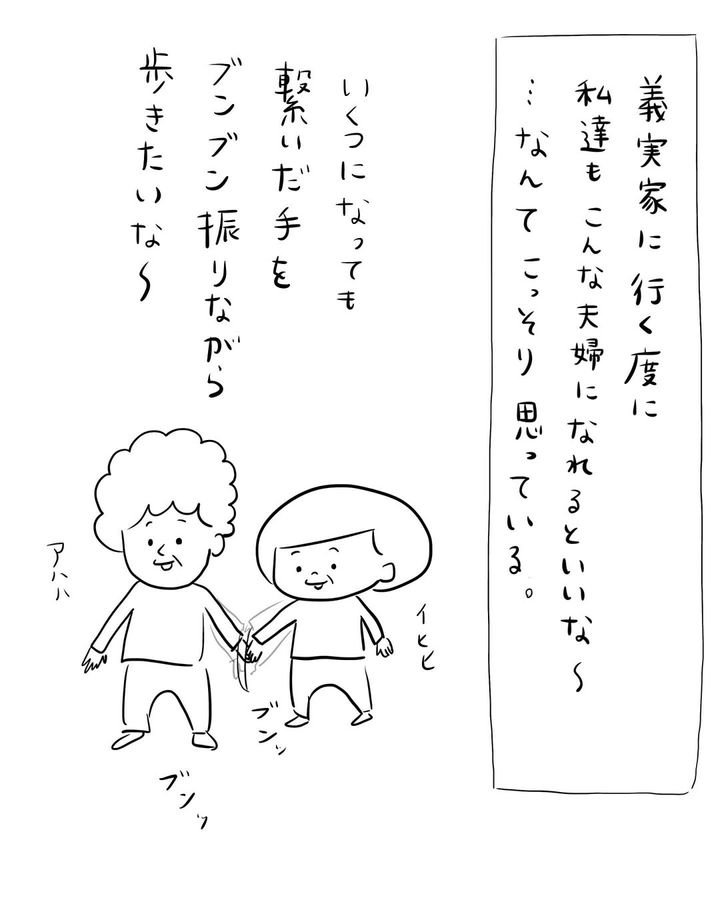 義実家に行く度に
私達もこんな夫婦になれるといいな〜
…なんてこっそり思っている。
いくつになっても
繋いだ手を
ブンブン振りながら
歩きたいな〜
アハハ
イヒヒ
ブンッ
ブンッ